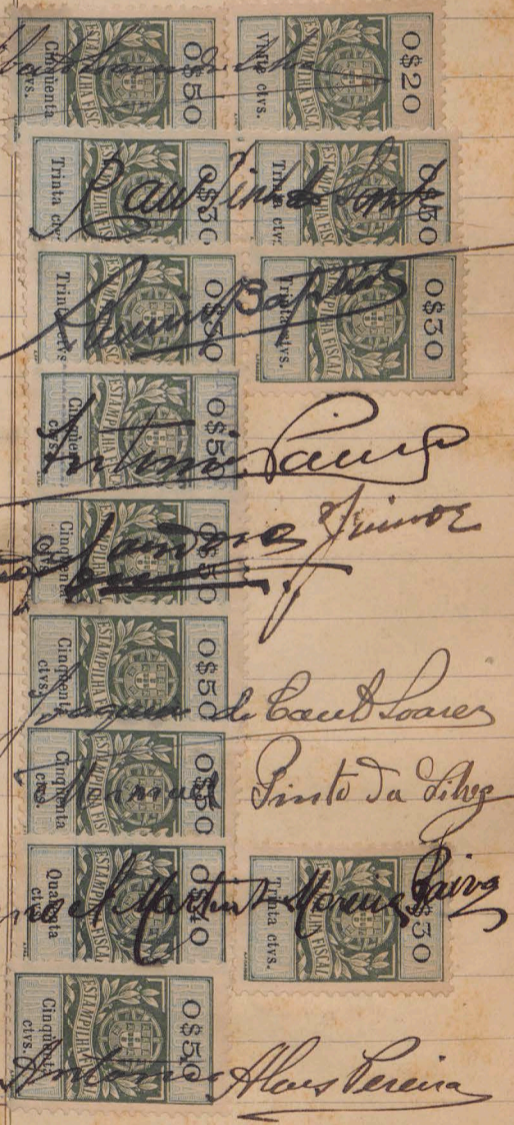 ESTAMPILHA FISCAL Cinquenta ctvs. 0$50 ESTAMPILHA FISCAL Vinte ctvs. 0$20
ESTAMPILHA FISCAL Trinta ctvs. 0$30 ESTAMPILHA FISCAL
Raul Pinto
ESTAMPILHA FISCAL Trinta ctvs. 0$30 ESTAMPILHA FISCAL Trinta ctvs. 0$30
Baptista
ESTAMPILHA FISCAL Cinquenta ctvs. 0$50
Antonio
ESTAMPILHA FISCAL Cinquenta ctvs. 0$50
Junior
ESTAMPILHA FISCAL Cinquenta ctvs. 0$50
Joaquim do Couto Soares
ESTAMPILHA FISCAL Cinquenta ctvs. 0$50
Manuel Pinto da Silva
ESTAMPILHA FISCAL Quarenta ctvs. 0$40 ESTAMPILHA FISCAL Trinta ctvs. 0$30
Martins Moreira Paiva
ESTAMPILHA FISCAL Cinquenta ctvs. 0$50
Antonio Alves Pereira